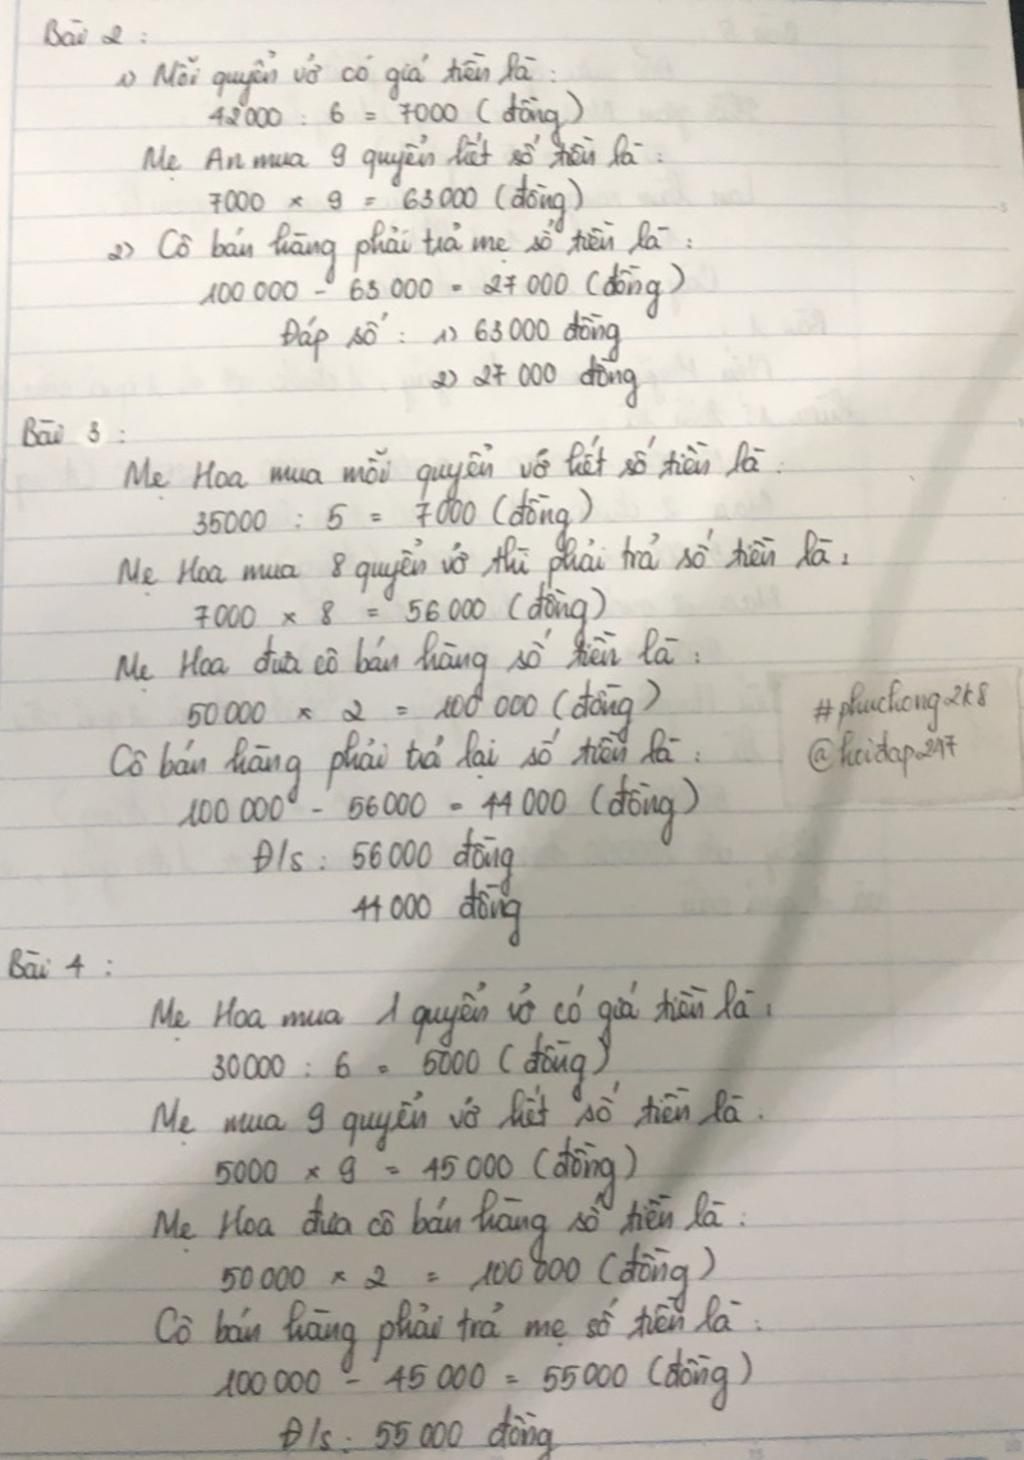 Bài 2 :
1) Mỗi quyển vở có giá tiền là :
42000 : 6 = 7000 ( đồng )
Mẹ An mua 9 quyển hết số tiền là :
7000 × 9 = 63000 ( đồng )
2) Cô bán hàng phải trả mẹ số tiền là :
100 000 - 63 000 = 27 000 ( đồng )
Đáp số : 1) 63 000 đồng
2) 27 000 đồng
Bài 3 :
Mẹ Hoa mua mỗi quyển vở hết số tiền là :
35000 : 5 = 7000 ( đồng )
Mẹ Hoa mua 8 quyển vở thì phải trả số tiền là :
7000 × 8 = 56 000 ( đồng )
Mẹ Hoa đưa cô bán hàng số tiền là :
50 000 × 2 = 100 000 ( đồng )
Cô bán hàng phải trả lại số tiền là :
100 000 - 56 000 = 44 000 ( đồng )
Đ/s : 56 000 đồng
44 000 đồng
#phuchong2k8
@hoidap247
Bài 4 :
Mẹ Hoa mua 1 quyển vở có giá tiền là :
30 000 : 6 = 5000 ( đồng )
Mẹ mua 9 quyển vở hết số tiền là :
5000 × 9 = 45 000 ( đồng )
Mẹ Hoa đưa cô bán hàng số tiền là :
50 000 × 2 = 100 000 ( đồng )
Cô bán hàng phải trả mẹ số tiền là :
100 000 - 45 000 = 55 000 ( đồng )
Đ/s : 55 000 đồng